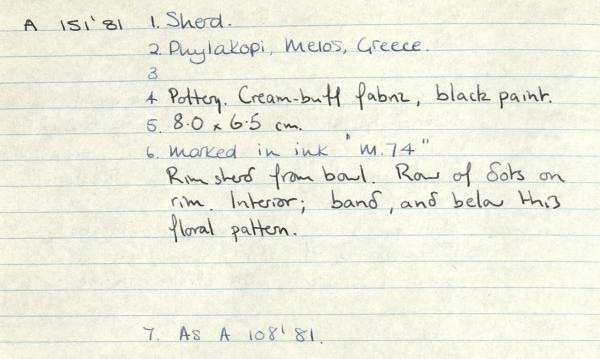 A 151'81 1. Sherd.
2. Phylakopi, Melos, Greece.
3
4 Pottery. Cream-buff fabric, black paint.
5. 8.0 x 6.5 cm.
6. marked in ink "M.74"
Rim sherd from bowl. Row of dots on
rim. Interior; band, and below this
floral pattern.
7. As A 108'81.